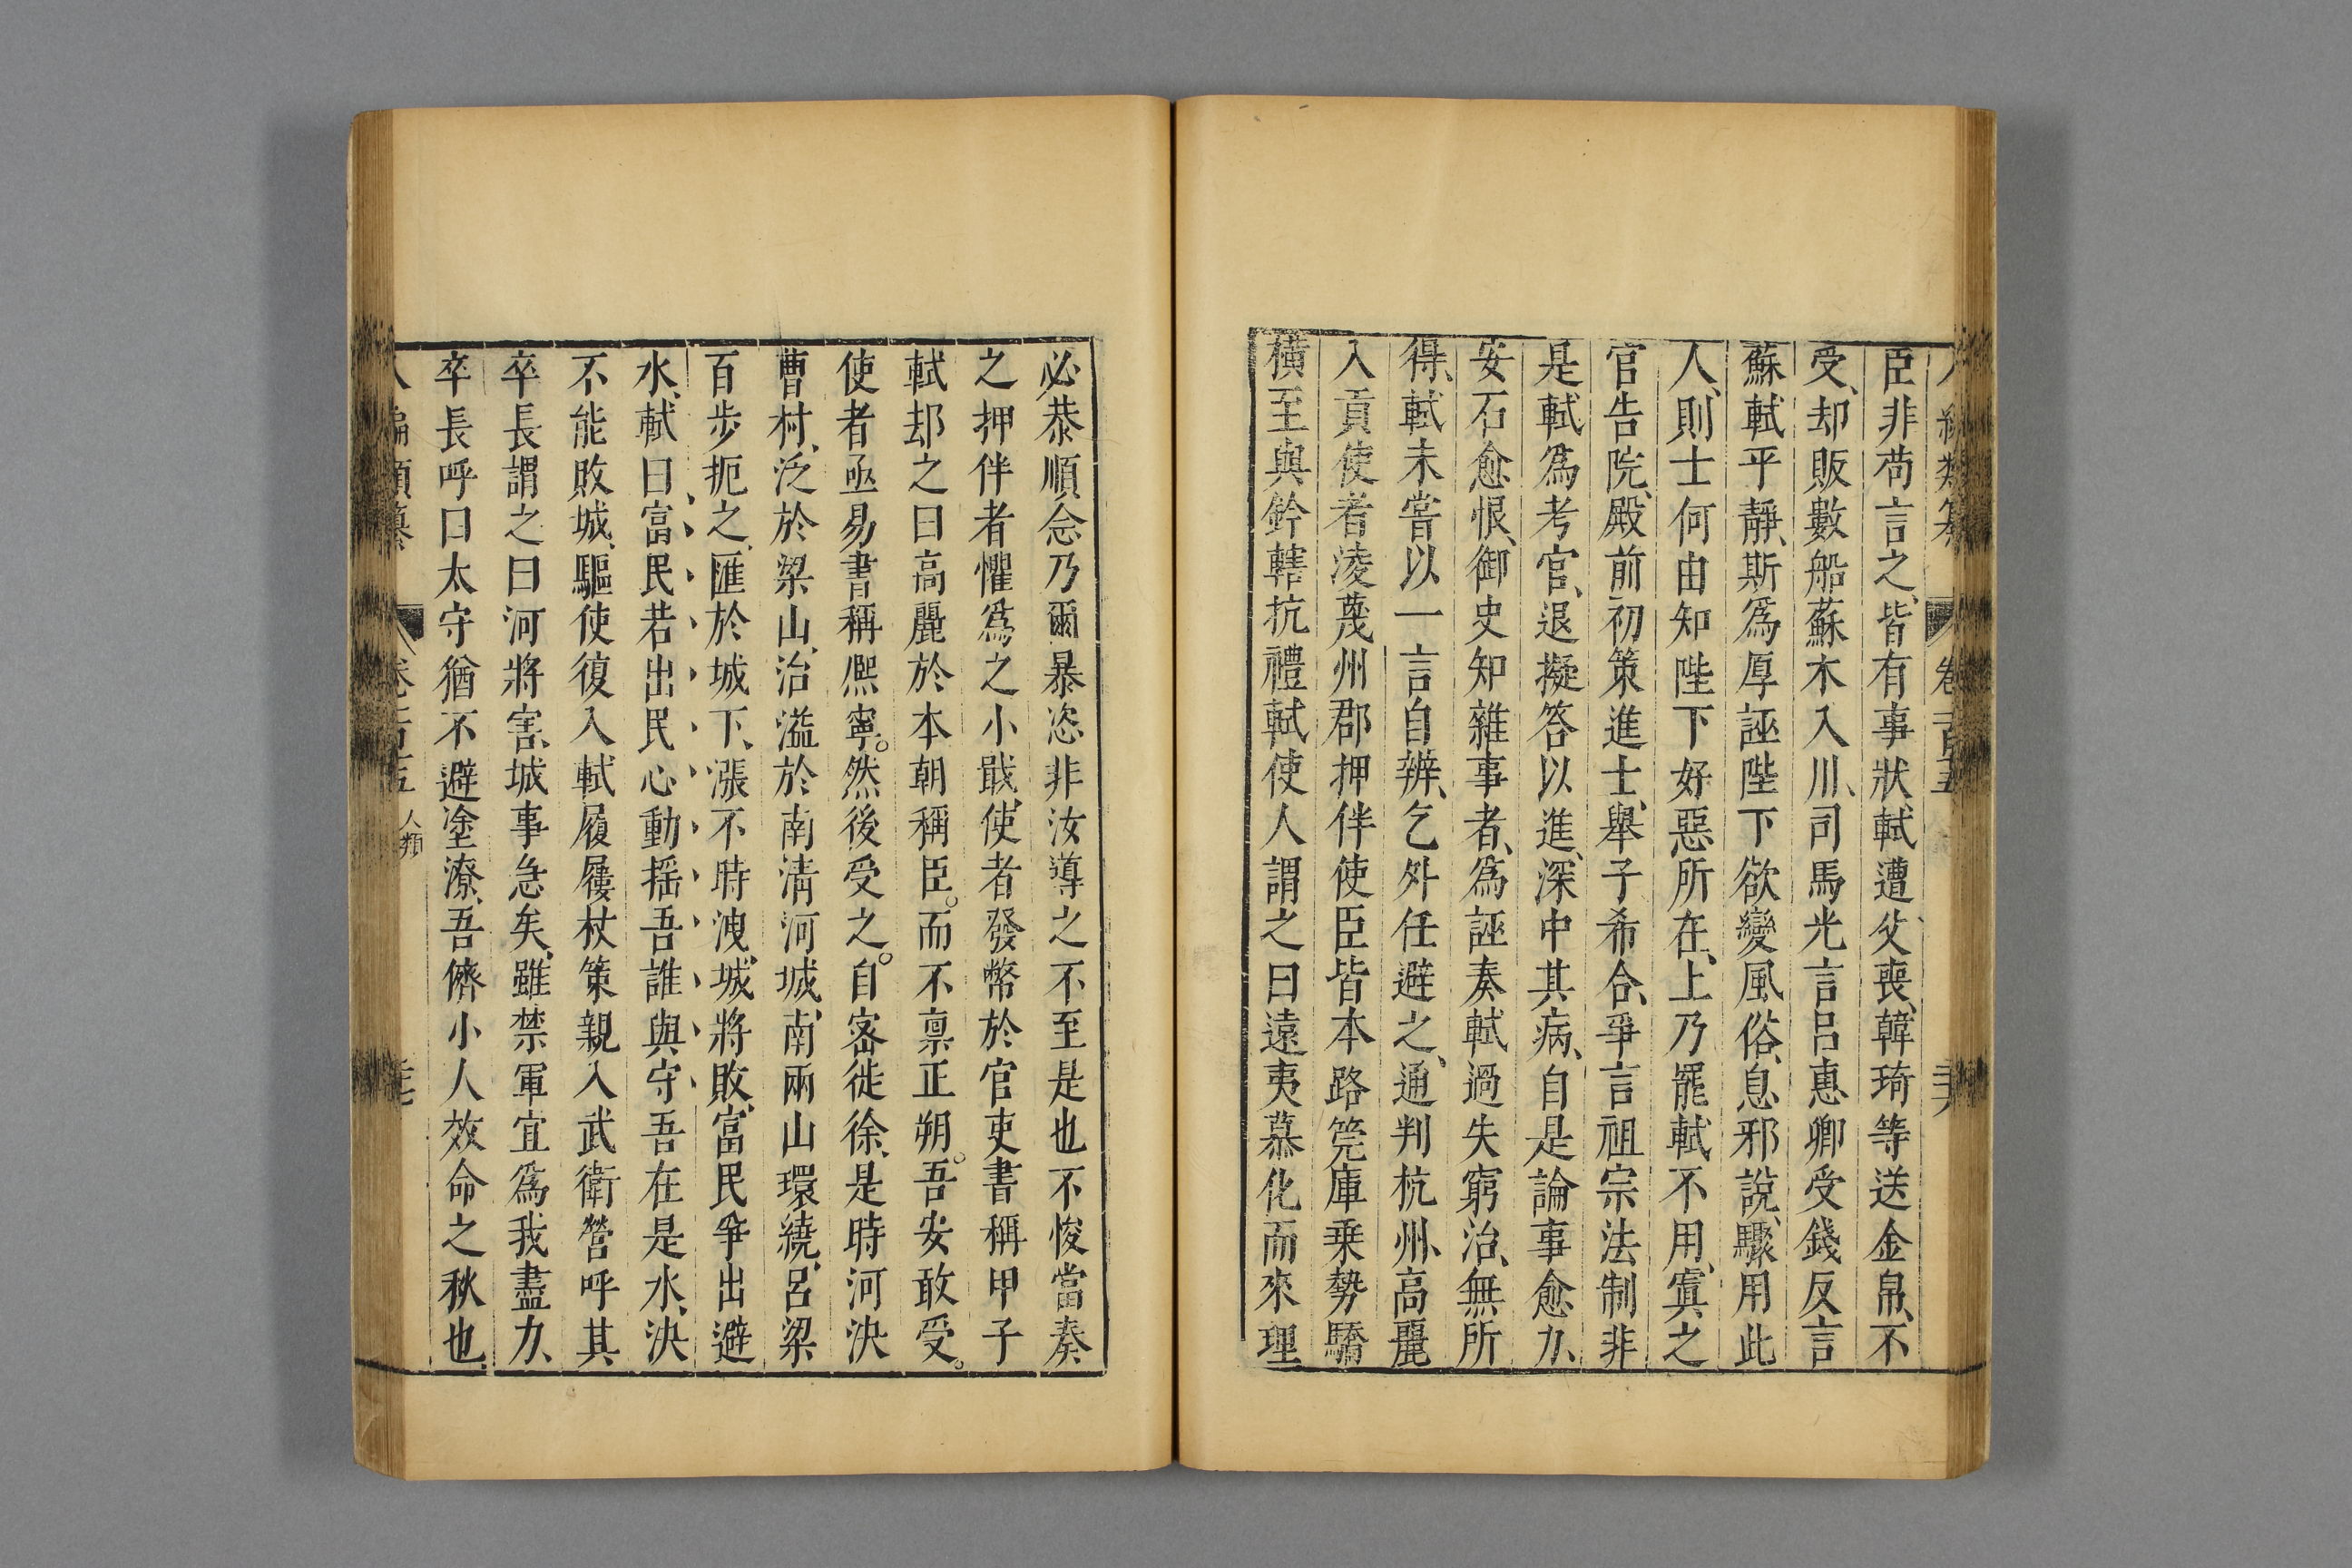 臣非苟言之、皆有事狀、軾遭父喪、韓琦等送金帛、不
受、却販數船蘇木入川、司馬光言呂惠卿受錢反言
蘇軾平靜、斯爲厚誣、陛下欲變風俗、息邪說、驟用此
人、則士何由知陛下好惡所在、上乃罷軾不用、寘之
官告院、殿前初策進士、舉子希合、爭言祖宗法制非
是、軾爲考官、退擬答以進、深中其病、自是論事愈力、
安石愈恨、御史知雜事者、爲誣奏軾過失窮治、無所
得、軾未嘗以一言自辨、乞外任避之、通判杭州、高麗
入貢使者淩蔑州郡押伴使臣皆本路筦庫乗勢驕
橫至與鈐轄抗禮軾使人謂之曰遠夷慕化而來理
必恭順今乃爾暴恣非汝導之不至是也不悛當奏
之押伴者懼爲之小戢、使者發幣於官吏書稱甲子
軾却之曰高麗於本朝稱臣。而不禀正朔。吾安敢受。
使者亟易書稱熈寧。然後受之。自密徙徐、是時河決
曹村、泛於梁山、溢於南清河、城南兩山環繞、呂梁
百步扼之、匯於城下、漲不時洩、城將敗、富民爭出避
水、軾曰、富民若出民心動搖吾誰與守吾在是水、決
不能敗城、驅使復入軾履屨杖策親入武衛營呼其
卒長謂之曰河將害、城事急矣、雖禁軍宜爲我盡力、
卒長呼曰太守猶不避塗潦、吾儕小人效命之秋也、
編類纂
卷一百五
人類